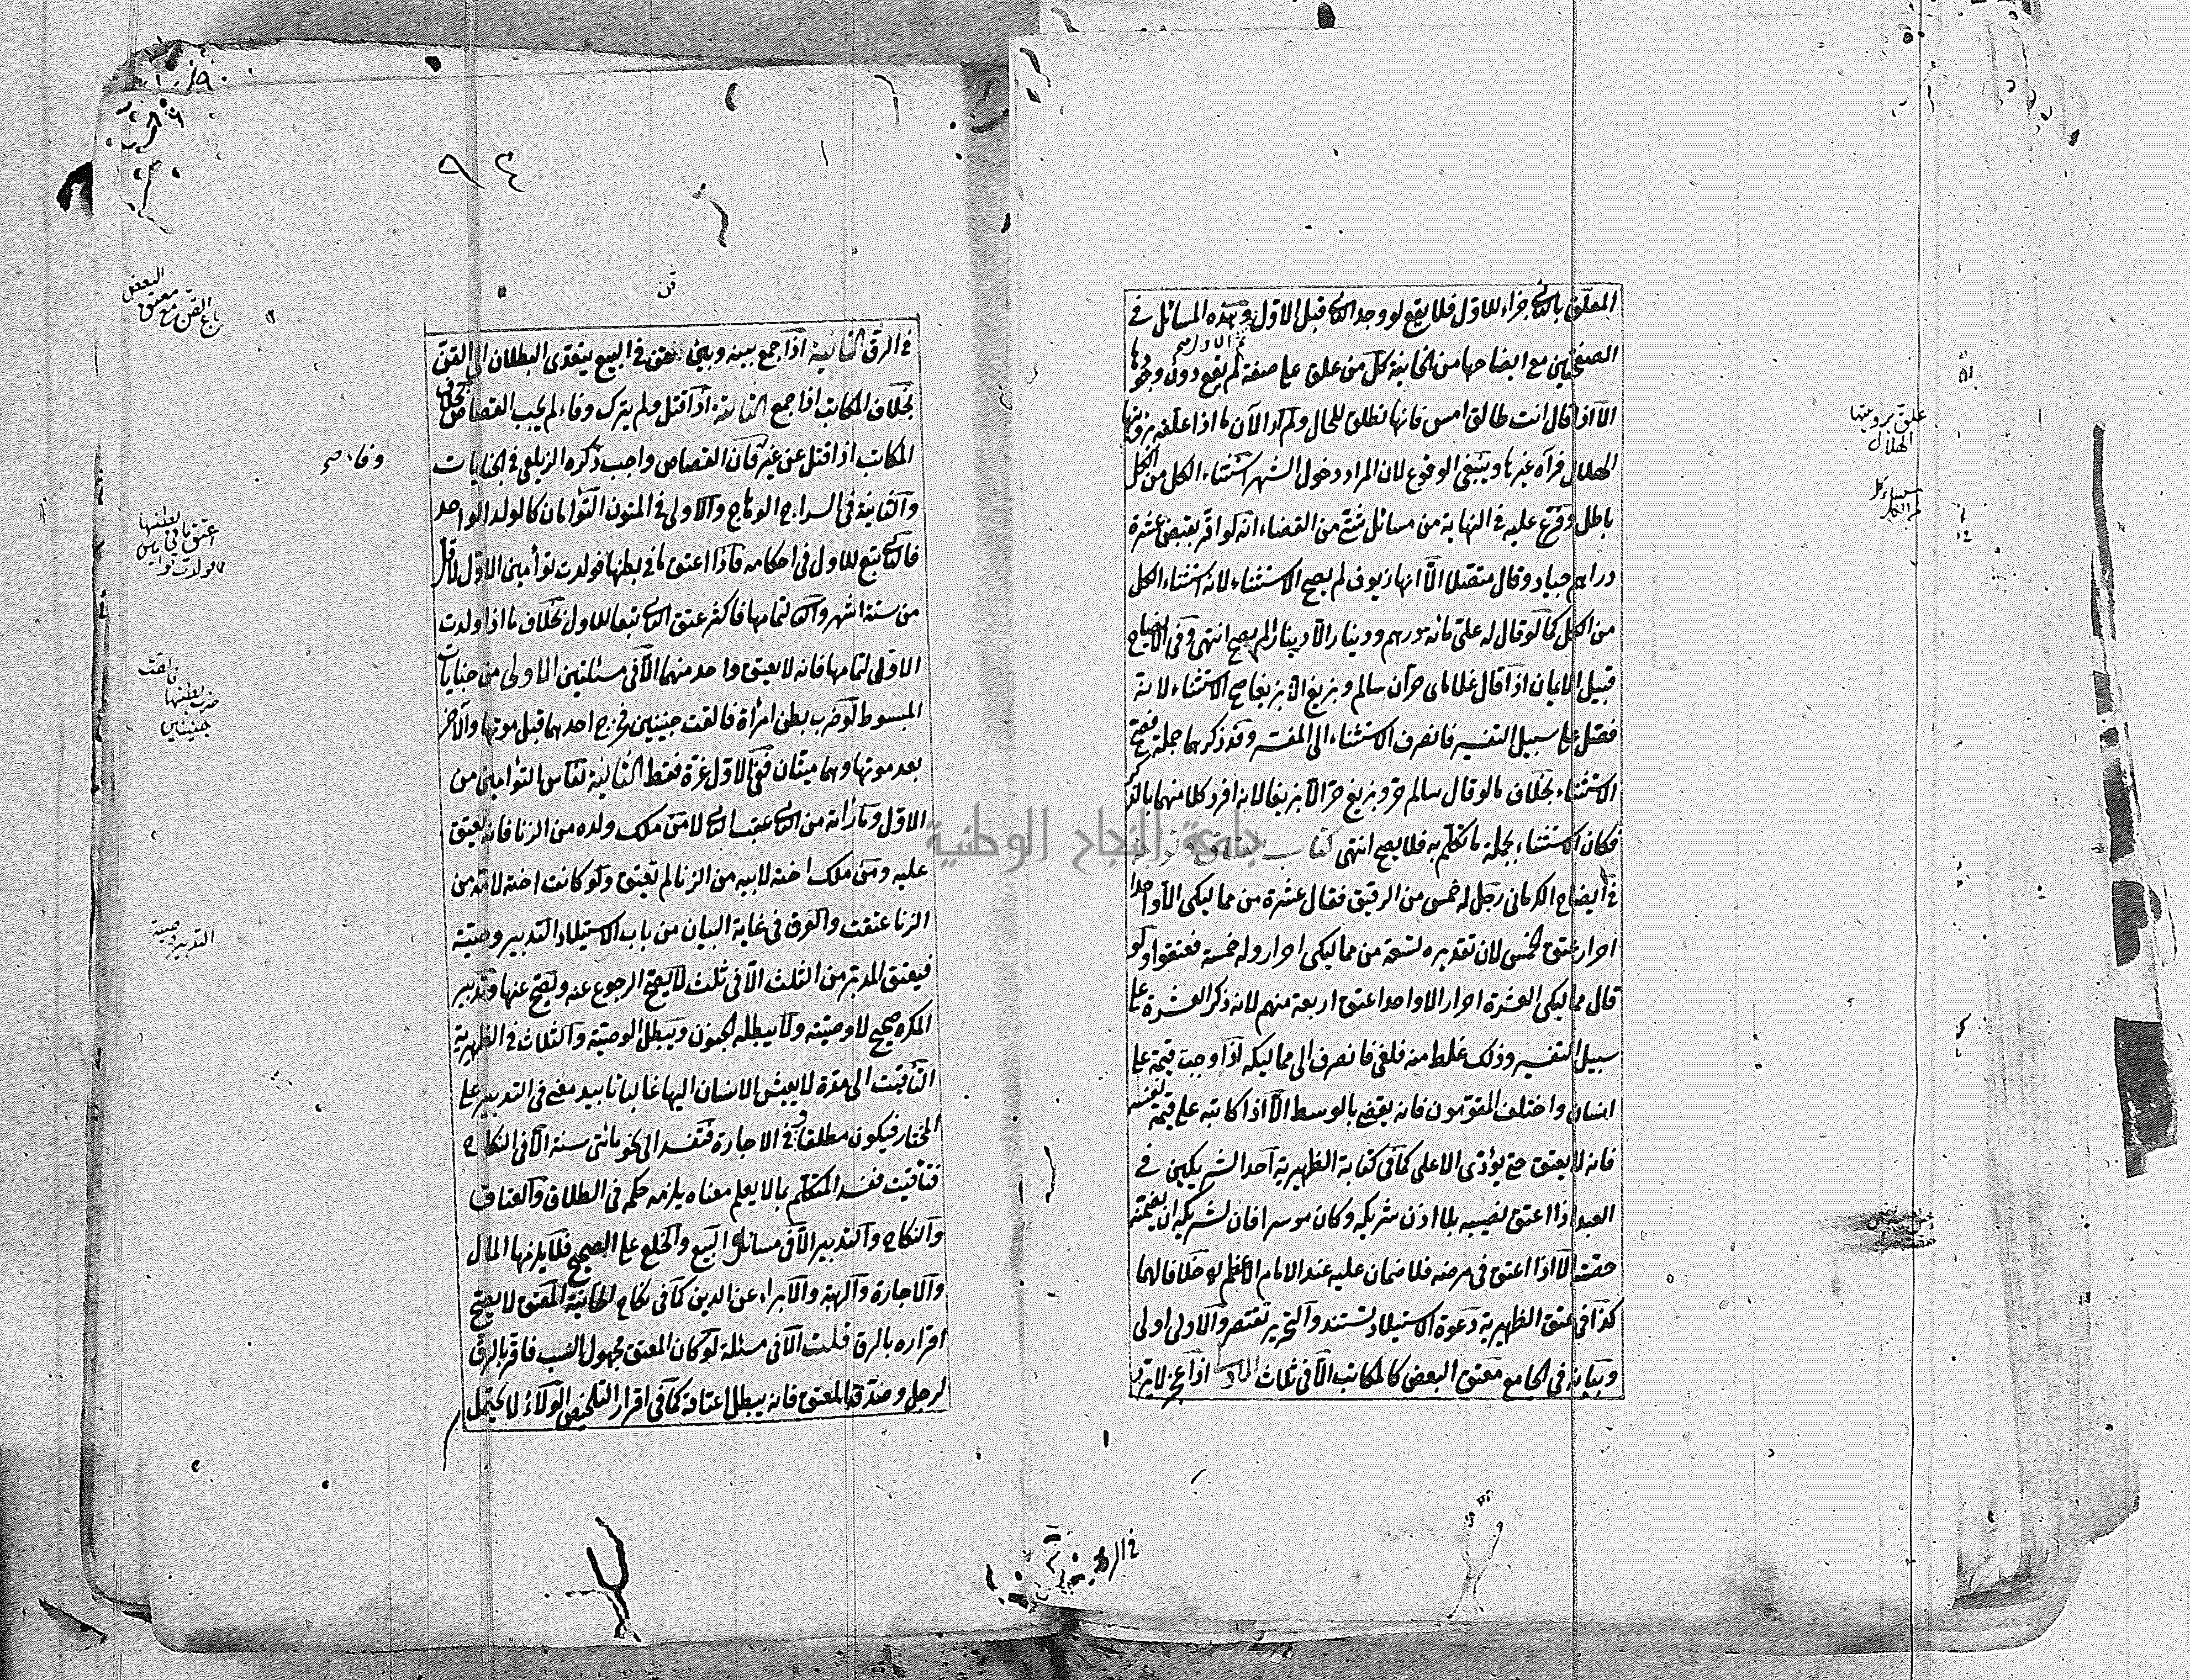 المعلق بالثاني جزاء للاول فلا يقع لو وجد الثاني قبل الاول وهذه المسائل في
الصفحتين مع ايضاحها من الخانية كل من علق على صفة لم يقع دون وجودها
الا اذا قال انت طالق امس فانها تطلق للحال ولم أر الآن ما اذا علقه برؤيتها
الهلال فرآه غيرها وينبغي الوقوع لان المراد دخول الشهر استثناء الكل من الكل
باطل وفرع عليه في النهاية من مسائل شتى من القضاء انه لو اقر بقبض عشرة
دراهم جياد وقال متصلا الا انها زيوف لم يصح الاستثناء لانه استثناء الكل
من الكل كما لو قال له على مائة درهم ودينار الا دينارا لم يصح انتهى وفي الايضاح
قبيل الايمان اذا قال غلاماي حران سالم وبزيغ الا بزيغا صح الاستثناء لانه
فصل على سبيل التفسير فانصرف الاستثناء الى المفسر وقد ذكرهما جملة فصح
الاستثناء بخلاف ما لو قال سالم حر وبزيغ حر الا بزيغا لانه افرد كلا منهما بالذكر
فكان الاستثناء بجملة ما تكلم به فلا يصح انتهى كتاب
في ايضاح الكرماني رجل له خمس من الرقيق فقال عشرة من مماليكي الا واحدا
احرار عتق الخمس لان تقديره تسعة من مماليكي احرار وله خمسة فعتقوا ولو
قال مماليكي العشرة احرار الا واحدا عتق اربعة منهم لانه ذكر العشرة على
سبيل التفسير وذلك غلط منه فلغى فانصرف الى مماليكه اذا وجبت قيمة على
انسان واختلف المقومون فانه يقضى بالوسط الا اذا كاتبه على قيمة نفسه
فانه لا يعتق حتى يؤدى الاعلى كما في كتابة الظهيرية احد الشريكين في
العبد اذا اعتق نصيبه بلا اذن شريكه وكان موسرا فان لشريكه ان يضمنه
حصته الا اذا اعتق في مرضه فلا ضمان عليه عند الامام الاعظم خلافا لهما
كذا في عتق الظهيرية دعوة الاستيلاد تستند والتحرير تقتصر والاولى اولى
وبيانه في الجامع معتق البعض كالمكاتب الا في ثلاث الاولى اذا عجز لا يرد
علق برويتها
الهلال
في الرق
٩٤
في الرق الثانية اذا جمع بينه وبين قن في البيع يتعدى البطلان الى القن
بخلاف المكاتب اذا جمع الثالثة اذا قتل ولم يترك وفاء لم يجب القصاص بخلاف
المكاتب اذا قتل عن غير فان القصاص واجب ذكره الزيلعي في الجنايات
والثانية في السراج الوهاج والاولى في المتون التوأمان كالولد الواحد
فالثاني تبع للاول في احكامه فاذا اعتق ما في بطنها فولدت توأمين الاول لاقل
من ستة اشهر والثاني لتمامها فاكثر عتق الثاني تبعا للاول بخلاف ما اذا ولدت
الاول لتمامها فانه لا يعتق واحد منهما الا في مسئلتين الاولى من جنايات
المبسوط لو ضرب بطن امرأة فالقت جنينين فخرج احدهما قبل موتها والآخر
بعد موتها وهما ميتان ففي الاول غرة فقط الثانية نفاس التوأمين من
الاول وما رأته من الثاني عقب الثاني لا من ملك ولده من الزنا فانه يعتق
عليه ومن ملك اخته لابيه من الزنا لم تعتق ولو كانت اخته لامه من
الزنا عتقت والفرق في غاية البيان من باب الاستيلاد التدبير وصية
فيعتق المدبر من الثلث الا في ثلث لا يصح الرجوع عنه ويصح عنها وتدبير
المكره صحيح لا وصيته ولا يبطله الجنون ويبطل الوصية والثلاث في الظهيرية
التأقيت الى مدة لا يعيش الانسان اليها غالبا تأبيد معنى في التدبير على
المختار فيكون مطلقا وفي الاجارة فتفسد الى نحو مائتى سنة الا في النكاح
فتأقيت فيفسد المتكلم بما لا يعلم معناه يلزمه حكمه في الطلاق والعتاق
والنكاح والتدبير الا في مسائل البيع والخلع على الصحيح فلا يلزمها المال
والاجارة والهبة والابراء عن الدين كما في نكاح الخانية المعتق لا يصح
اقراره بالرق قلت الا في مسئلة لو كان المعتق مجهول النسب فاقر بالرق
لرجل وصدقه المعتق فانه يبطل اعتاقه كما في اقرار التلخيص الولاء لا يحتمل
باع القن مع معتق
البعض
وفاء صح
عتق ما في بطنها
فولدت توأمين
فالقت
ضرب بطنها
جنينين
التدبير وصية